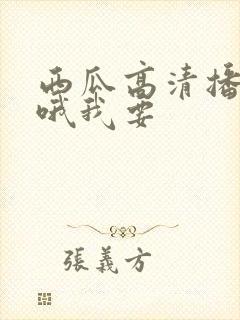 西瓜高清播
哦我要
張義方